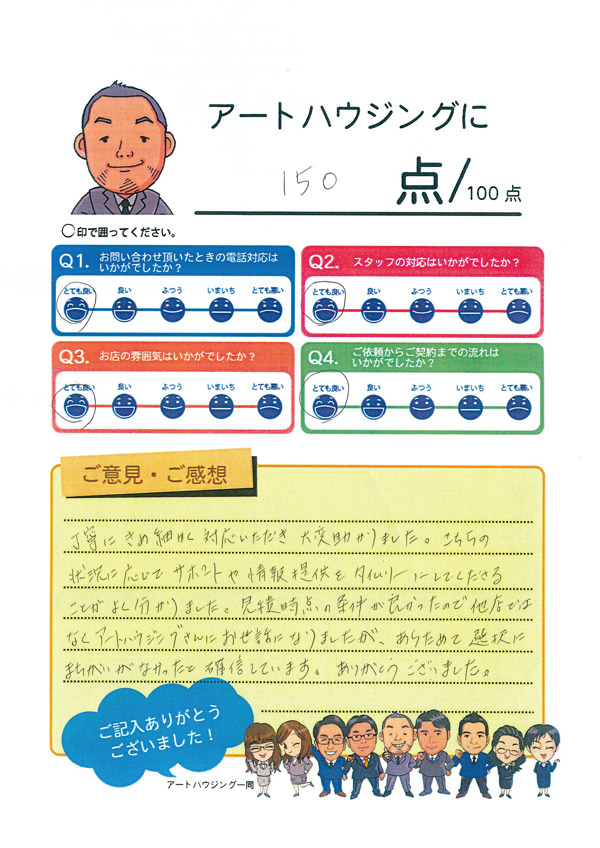 アートハウジングに
150 点/100点
○印で囲ってください。
Q1. お問い合わせ頂いたときの電話対応は
いかがでしたか?
とても良い 良い ふつう いまいち とても悪い
Q2. スタッフの対応はいかがでしたか?
とても良い 良い ふつう いまいち とても悪い
Q3. お店の雰囲気はいかがでしたか?
とても良い 良い ふつう いまいち とても悪い
Q4. ご依頼からご契約までの流れは
いかがでしたか?
とても良い 良い ふつう いまいち とても悪い
ご意見・ご感想
丁寧にきめ細かく対応いただき大変助かりました。こちらの
状況に応じてサポートや情報提供をタイムリーにしてくださる
ことがよく分かりました。見積時点の条件が良かったので他店では
なくアートハウジングさんにお世話になりましたが、あらためて選択に
まちがいがなかったと確信しています。ありがとうございました。
ご記入ありがとう
ございました!
アートハウジング一同